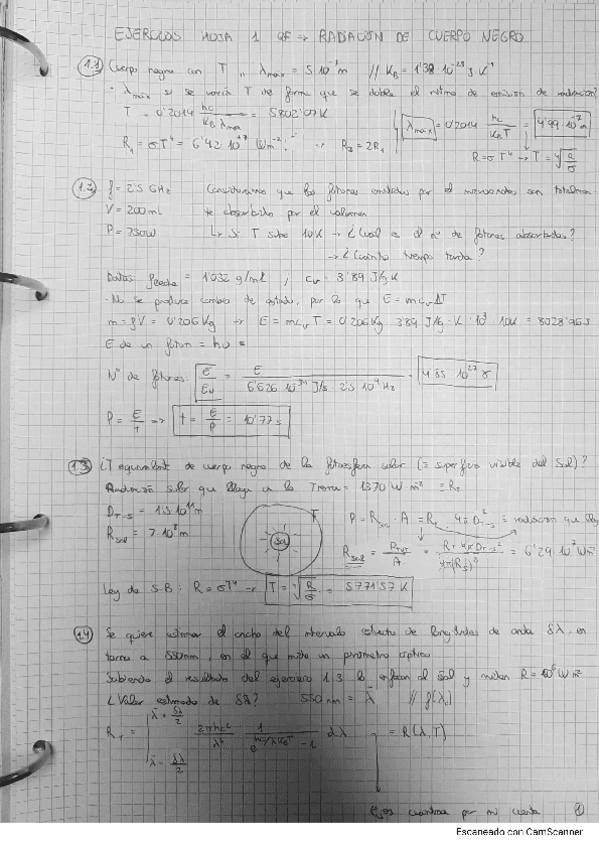 EJERCICIOS HOJA 1 QF → RADIACIÓN DE CUERPO NEGRO
1.1 Cuerpo negro con T λmax = 5·10⁻⁷m // KB = 1'38 10⁻²³ J K⁻¹
· λmax si se varía T de forma que se doble el ritmo de emisión de radiación?
T = 0'2014 hc / KB λmax = 5802'07K
λmax = 0'2014 hc / KBT = 4'99·10⁻⁷m
R₁ = σT⁴ = 6'42·10⁷ Wm⁻² → R₂ = 2R₁
R=σT⁴ → T = ⁴√R/σ
1.2 f = 2'5 GHz Consideramos que los fotones emitidos por el microondas son totalmen-
V = 200mL te absorbidos por el volumen
P = 750W Si T sube 10K → ¿Cuál es el nº de fotones absorbidos?
→ ¿Cuánto tiempo tarda?
Datos: ρleche = 1'032 g/mL ; cv = 3'89 J/gK
· No se produce cambio de estado, por lo que E = mcvΔT
m = ρV = 0'206Kg → E = mcvT = 0'206Kg 3'89 J/Kg·K·10³ 10K = 8028'96J
E de un fotón = hυ =
Nº de fotones: E / Eυ = E / 6'626 10⁻³⁴ J/s · 2'5 10⁹ Hz = 4'85 10²⁷ γ
P = E/t => t = E/P = 10'77s
1.3 ¿T equivalente de cuerpo negro de la fotosfera solar (= superficie visible del Sol)?
Radiación solar que llega a la Tierra = 1370 W m⁻² = RT
DT-S = 1.5 10¹¹m
P = RSol · A = RT 4π D²T-S = radiación que llega
RSol = 7·10⁸m
Sol
RSol = PTOT / A = RT 4π DT-S² / 4π(RS)² = 6'29·10⁷ Wm⁻²
Ley de S-B: R = σT⁴ → T = ⁴√R/σ = 5771'57K
1.4 Se quiere estimar el ancho del intervalo estrecho de longitudes de onda δλ, en
torno a 550nm, en el que mide un pirómetro óptico
Sabiendo el resultado del ejercicio 1.3 lo enfocan al Sol y miden R=10⁶ W m⁻²
¿Valor estimado de δλ? 550 nm = λ̄ // f(λ)
λ̄ + δλ/2
RT = ∫ 2πhc² / λ⁵ 1 / e^hc/λKBT − 1 dλ = R(λ,T)
λ̄ − δλ/2
cuentas por mi cuenta 1
Escaneado con CamScanner